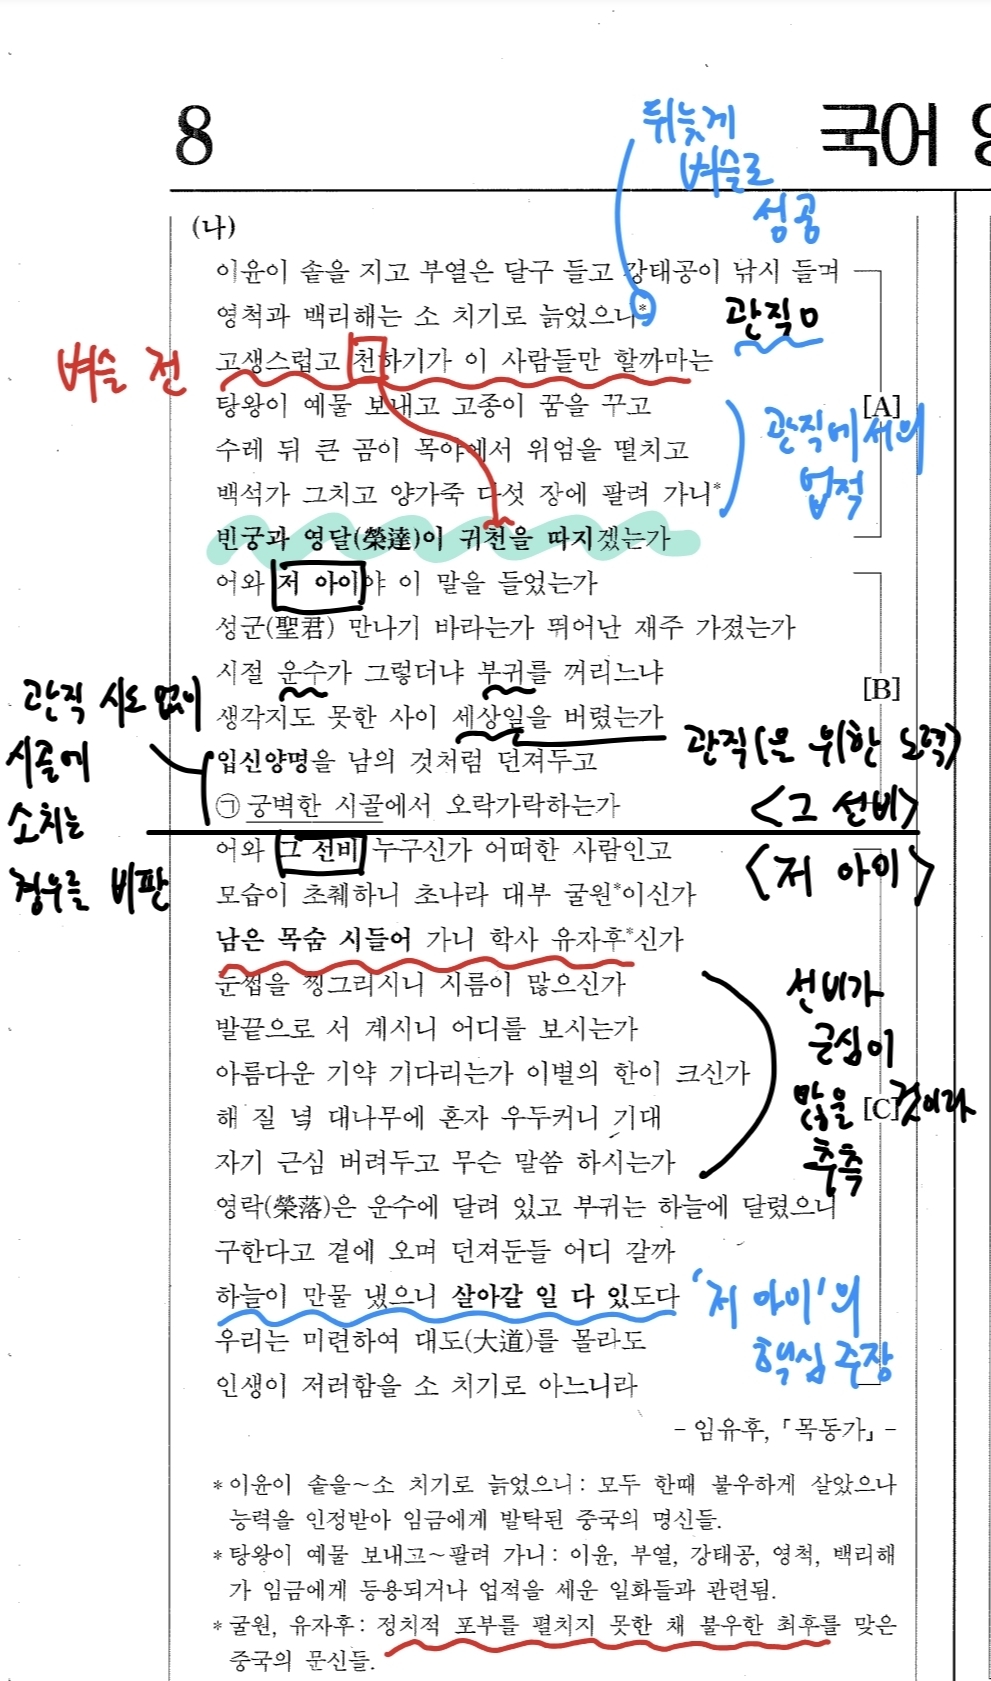 8
국어 영
뒤늦게
벼슬로
성공
(나)
이윤이 솥을 지고 부열은 달구 들고 강태공이 낚시 들며
영척과 백리해는 소 치기로 늙었으니*
관직 ㅁ
벼슬 전
고생스럽고 천하기가 이 사람들만 할까마는
탕왕이 예물 보내고 고종이 꿈을 꾸고
[A]
관직에서의
업적
수레 뒤 큰 곰이 목야에서 위엄을 떨치고
백석가 그치고 양가죽 다섯 장에 팔려 가니*
빈궁과 영달(榮達)이 귀천을 따지겠는가
어와 저 아이야 이 말을 들었는가
성군(聖君) 만나기 바라는가 뛰어난 재주 가졌는가
시절 운수가 그렇더냐 부귀를 꺼리느냐
[B]
생각지도 못한 사이 세상일을 버렸는가
입신양명을 남의 것처럼 던져두고
㉠ 궁벽한 시골에서 오락가락하는가
관직 시도 없이
시골에
소치는
경우를 비판
관직(을 위한 노력)
<그 선비>
<저 아이>
어와 그 선비 누구신가 어떠한 사람인고
모습이 초췌하니 초나라 대부 굴원*이신가
남은 목숨 시들어 가니 학사 유자후*신가
눈썹을 찡그리시니 시름이 많으신가
발끝으로 서 계시니 어디를 보시는가
아름다운 기약 기다리는가 이별의 한이 크신가
해 질 녘 대나무에 혼자 우두커니 기대
[C]
자기 근심 버려두고 무슨 말씀 하시는가
선비가
근심이
많을 것이라
추측
영락(榮落)은 운수에 달려 있고 부귀는 하늘에 달렸으니
구한다고 곁에 오며 던져둔들 어디 갈까
하늘이 만물 냈으니 살아갈 일 다 있도다
'저 아이'의
핵심 주장
우리는 미련하여 대도(大道)를 몰라도
인생이 저러함을 소 치기로 아느니라
- 임유후, 「목동가」 -
* 이윤이 솥을~소 치기로 늙었으니: 모두 한때 불우하게 살았으나
능력을 인정받아 임금에게 발탁된 중국의 명신들.
* 탕왕이 예물 보내고~팔려 가니: 이윤, 부열, 강태공, 영척, 백리해
가 임금에게 등용되거나 업적을 세운 일화들과 관련됨.
* 굴원, 유자후: 정치적 포부를 펼치지 못한 채 불우한 최후를 맞은
중국의 문신들.